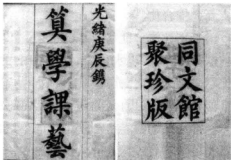 光緒庚辰鐫
算學課藝
同文館
聚珍版